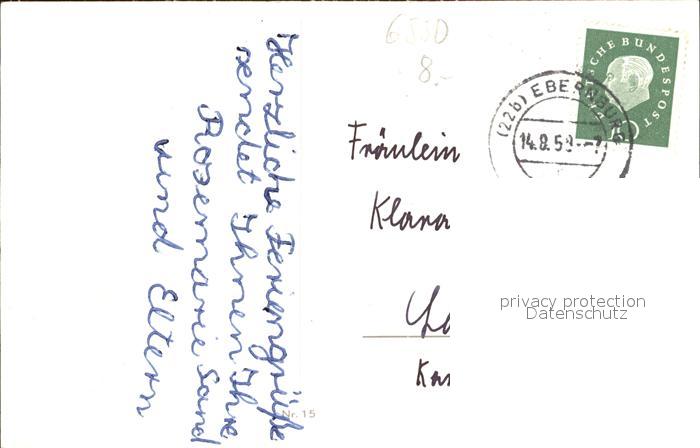 Herzliche Feriengrüße
sendet Ihnen Ihre
Rosemarie Sand
und Eltern
6550
8.-
DEUTSCHE BUNDESPOST
10
(22b) EBERNBURG
14.8.59--7
Fräulein
Klara
privacy protection
Datenschutz
Nr. 15